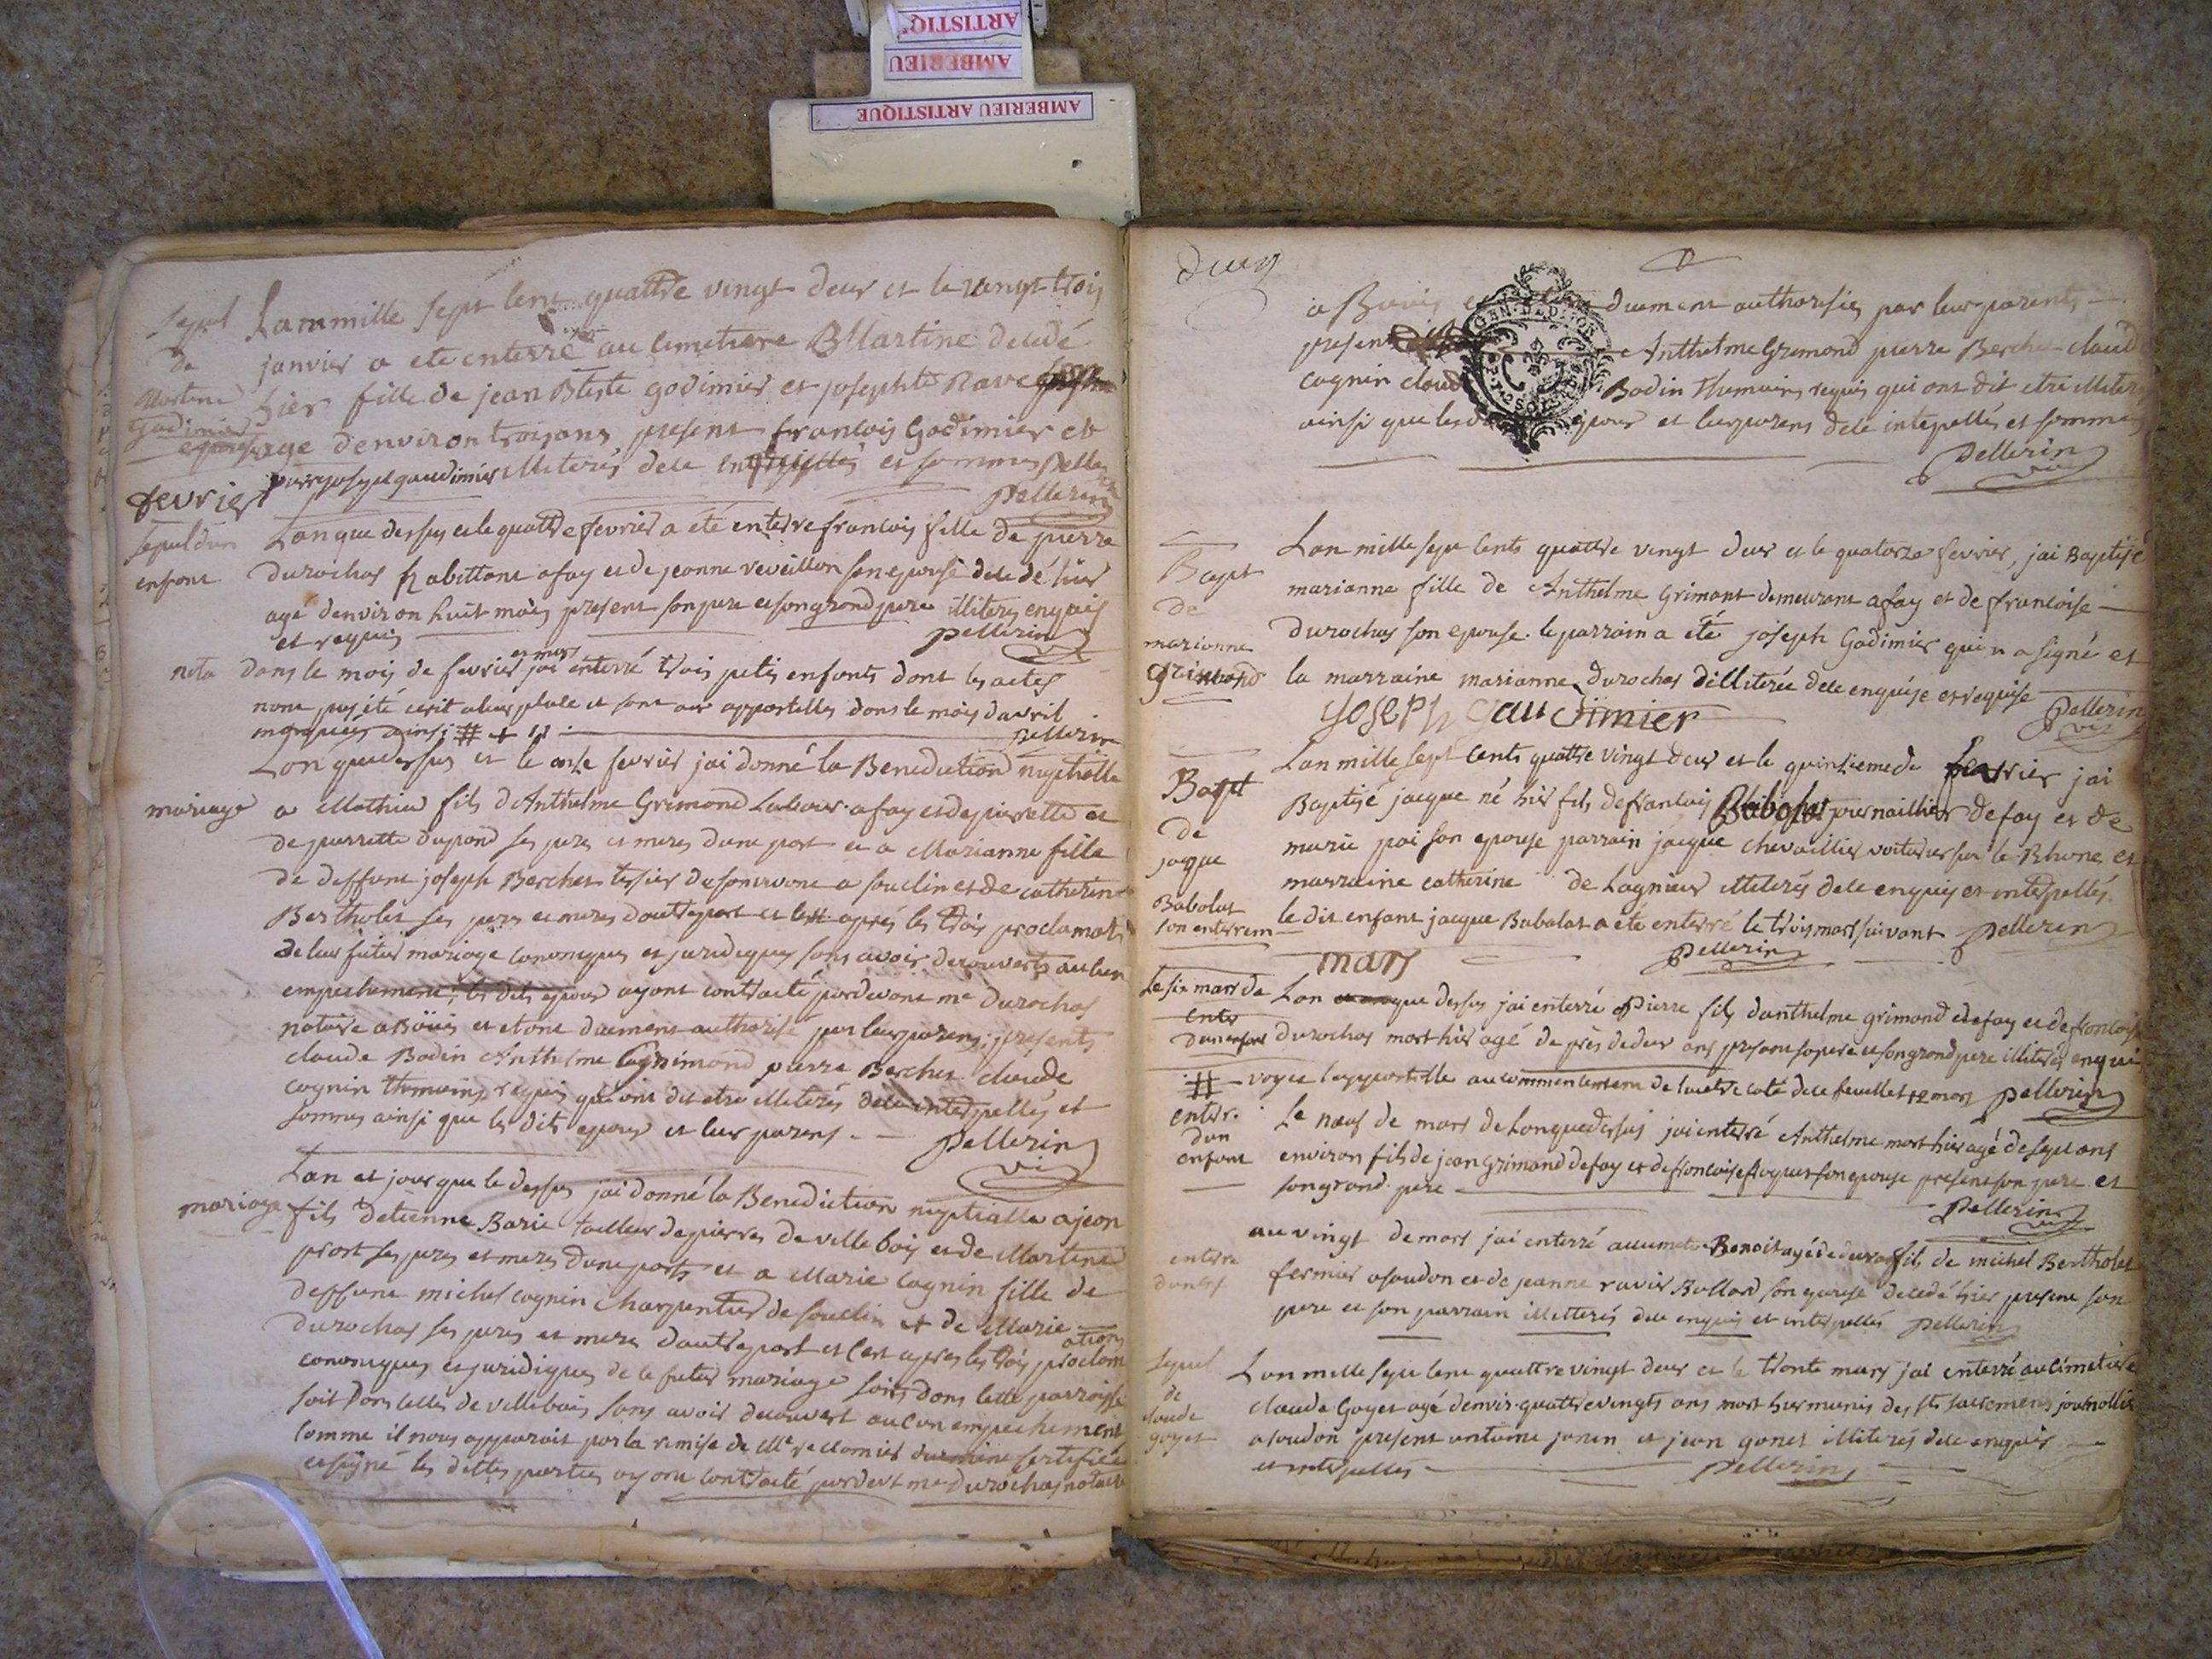 ARTISTIQ
AMBERIEU
AMBERIEU ARTISTIQUE
sepul
de
Martine
Gadimier
Lan mille sept cent quattre vingt deux et le vingt trois
janvier a ete enterré au cimetiere Martine decedé
hier fille de jean Bteste godimier et josephte Rave
age denviron trois ans present francois Gadimier et
illiterés dele et sommes
Pellerin
fevrier
sepul dun
enfant
Lan que dessus et le quattre fevrier a été enterre francois fille de pierre
durochas habittant a fay et de jeanne reveillon son epouse decedé hier
agé denviron huit mois present son pere et son grand pere illiteres enquis
et requis
Pellerin
nota
dans le mois de fevrier et mars jai enterré trois petis enfants dont les actes
nont pas été ecrit a leur place et sont aux appostelles dans le mois davril
marquées ainsi # +
Pellerin
mariage
Lan que dessus et le onse fevrier jai donné la Benediction nuptialle
a Mathieu fils d'Anthelme Grimond Labour. a fay et de pierrette et
de pierrette dupond ses peres et meres dune part et a Marianne fille
de deffunt joseph Berchet tissier de son vivant a souclin et de catherine
Bertholet ses peres et meres dautre part et cest aprés les trois proclamati
de leur futur mariage canoniques et juridiques sans avoir decouverts aucun
empechement, les dits epoux ayant contracté pardevant me durochas
notaire a Böuis et etant duement authorisé par leur parens; presents
claude Bodin Anthelme Grimond pierre Berchet claude
cognin themoins requis qui ont dit etre illiterés dele interpellés et
sommes ainsi que les dits epoux et leur parens.
Pellerin
vic
mariage
Lan et jour que le dessus jai donné la Benediction nuptialle a jean
fils d'etienne Barie tailleur de pierres de ville bois et de Martine
prost ses peres et meres dune parts et a Marie cognin fille de
deffunt michel cognin charpentier de souclin et de Marie
durochas ses peres et meres dautre part et cest apres les trois proclamations
canoniques et juridiques de le futur mariage soits dans cette parroisse
soit dans celles de villebois sans avoir decouvert aucun empechement
comme il nous apparoit par la remise de Mr certifiée
et signé les dittes parties ayant contracté pardevt me Durochas notaire
deux
GEN. DE DIJON
a Bouis et duement authorisées par leur parents
present Anthelme Grimond pierre Berchet claud
cognin claude Bodin themoins requis qui ont dit etre illiter
ainsi que les epoux et leur parens dele intepellés et sommes
Pellerin
vic
Bapt
de
marianne
Grimond
Lan mille sept cents quattre vingt deux et le quatorze fevrier, jai Baptisé
marianne fille de Anthelme Grimont demeurant a fay et de francoise
durochas son epouse. le parrain a été joseph Gadimier qui a signé et
la marraine marianne durochas dilliterée dele enquise et requise
joseph gaudimier
Pellerin
vic
Bapt
de
jacque
Babolat
son enterrem
Lan mille sept cents quattre vingt deux et le quinsieme de fevrier jai
Baptisé jacque né hier fils de francois Babolat journaillier de fay et de
marie pai son epouse parrain jacque chevaillier voiturier sur le Rhone et
marraine catherine de Lagnieu illiterés dele enquis et interpellés.
le dit enfant jacque Babalat a été enterré le trois mars suivant
Pellerin
Pellerin
mars
Le six mars de
ente
dun enfant
Lan que dessus jai enterré Pierre fils danthelme grimond de fay et de francoise
durochas mort hier agé de près de deux ans present son pere et son grand pere illiterés enqui
#
voyez lappostille au commencement de lautre coté dele feuillet 12 mars
Pellerin
enter.
dun
enfant
Le neuf de mars de lan que dessus jai enterré Anthelme mort hier agé de sept ans
environ fils de jean Grimand de fay et de francoise son epouse present son pere et
son grand pere
Pellerin
enterre
dun enf
au vingt de mars jai enterré Benoit agé de deux fils de michel Bertholet
fermier a soudon et de jeanne ravir Ballard son epouse decedé hier present son
pere et son parrain illetterés dele enquis et interpellés
Pellerin
sepul
de
claude
goyet
Lan mille sept cent quattre vingt deux et le trente mars jai enterré au cimetiere
claude Goyet agé denvir. quattre vingts ans mort hier munis des sts sacremens journallier
a soudon present antoine janin et jean illiterés dele enquis
et interpelles
Pellerin